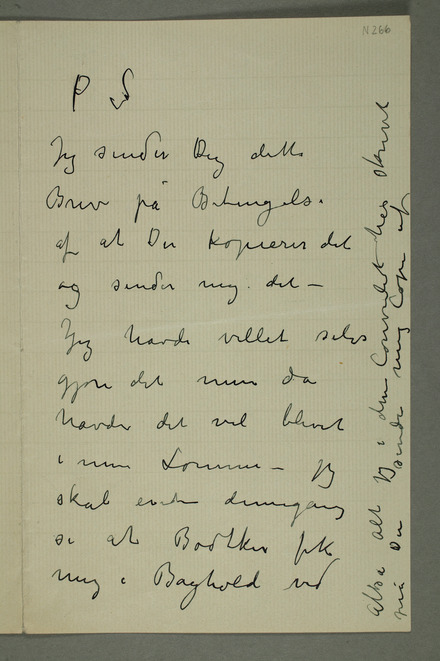 N 266
P S
Jeg sender Dig dette
Brev på Betingelse
af at Du kopierer det
og sender mig det –
Jeg havde villet selv
gjøre det men da
havde det vel blevet
i min Lomme – Jeg
skal denne gang
se at Bødtker fik
mig i Baghold ved
altså alt Jeg i den har skrevet
må Du sende mig Copi af